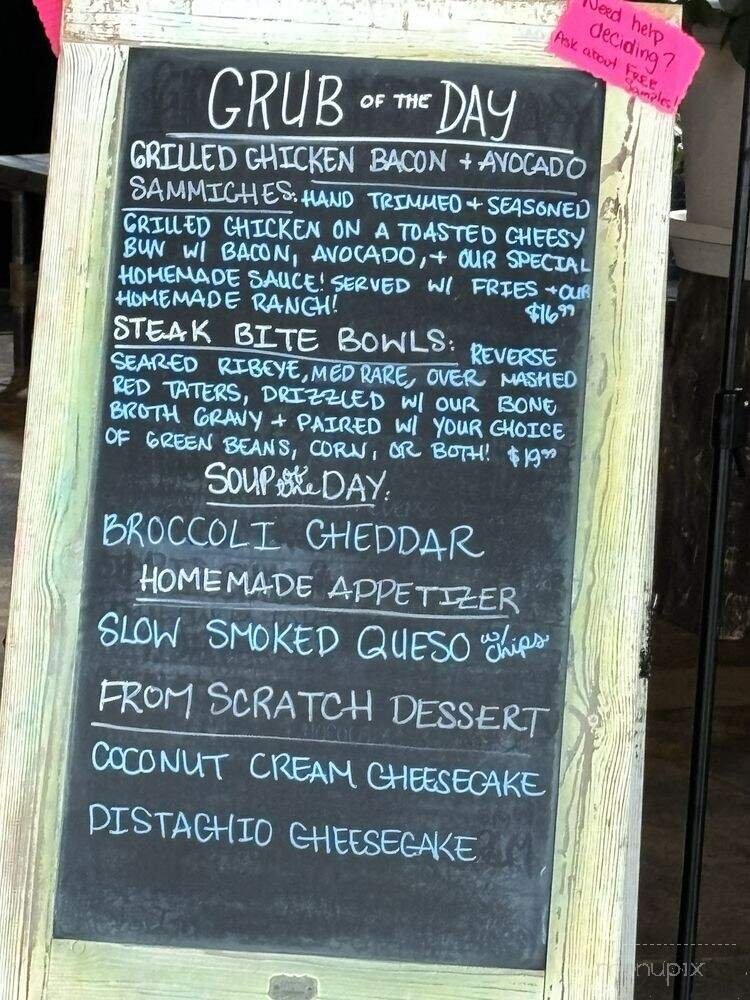 Need help
deciding?
Ask about FREE
Samples!
GRUB OF THE DAY
GRILLED CHICKEN BACON + AVOCADO
SAMMICHES: HAND TRIMMED + SEASONED
GRILLED CHICKEN ON A TOASTED CHEESY
BUN W/ BACON, AVOCADO, + OUR SPECIAL
HOMEMADE SAUCE! SERVED W/ FRIES + OUR
HOMEMADE RANCH! $16.99
STEAK BITE BOWLS: REVERSE
SEARED RIBEYE, MED RARE, OVER MASHED
RED TATERS, DRIZZLED W/ OUR BONE
BROTH GRAVY + PAIRED W/ YOUR CHOICE
OF GREEN BEANS, CORN, OR BOTH! $19.99
SOUP of the DAY:
BROCCOLI CHEDDAR
HOMEMADE APPETIZER
SLOW SMOKED QUESO w/ chips
FROM SCRATCH DESSERT
COCONUT CREAM CHEESECAKE
PISTACHIO CHEESECAKE
menupix